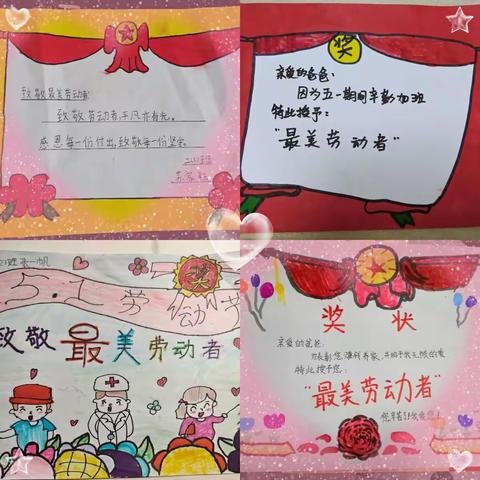 致敬最美劳动者:
致敬劳动者,平凡亦有光。
感恩每一份付出,致敬每一份坚守。
奖
亲爱的爸爸:
因为五一期间辛勤加班
特此授予:
"最美劳动者"
张一帆
奖
5.1劳动节
致敬最美劳动者
奖状
亲爱的爸爸:
特此授予您:
"最美劳动者"